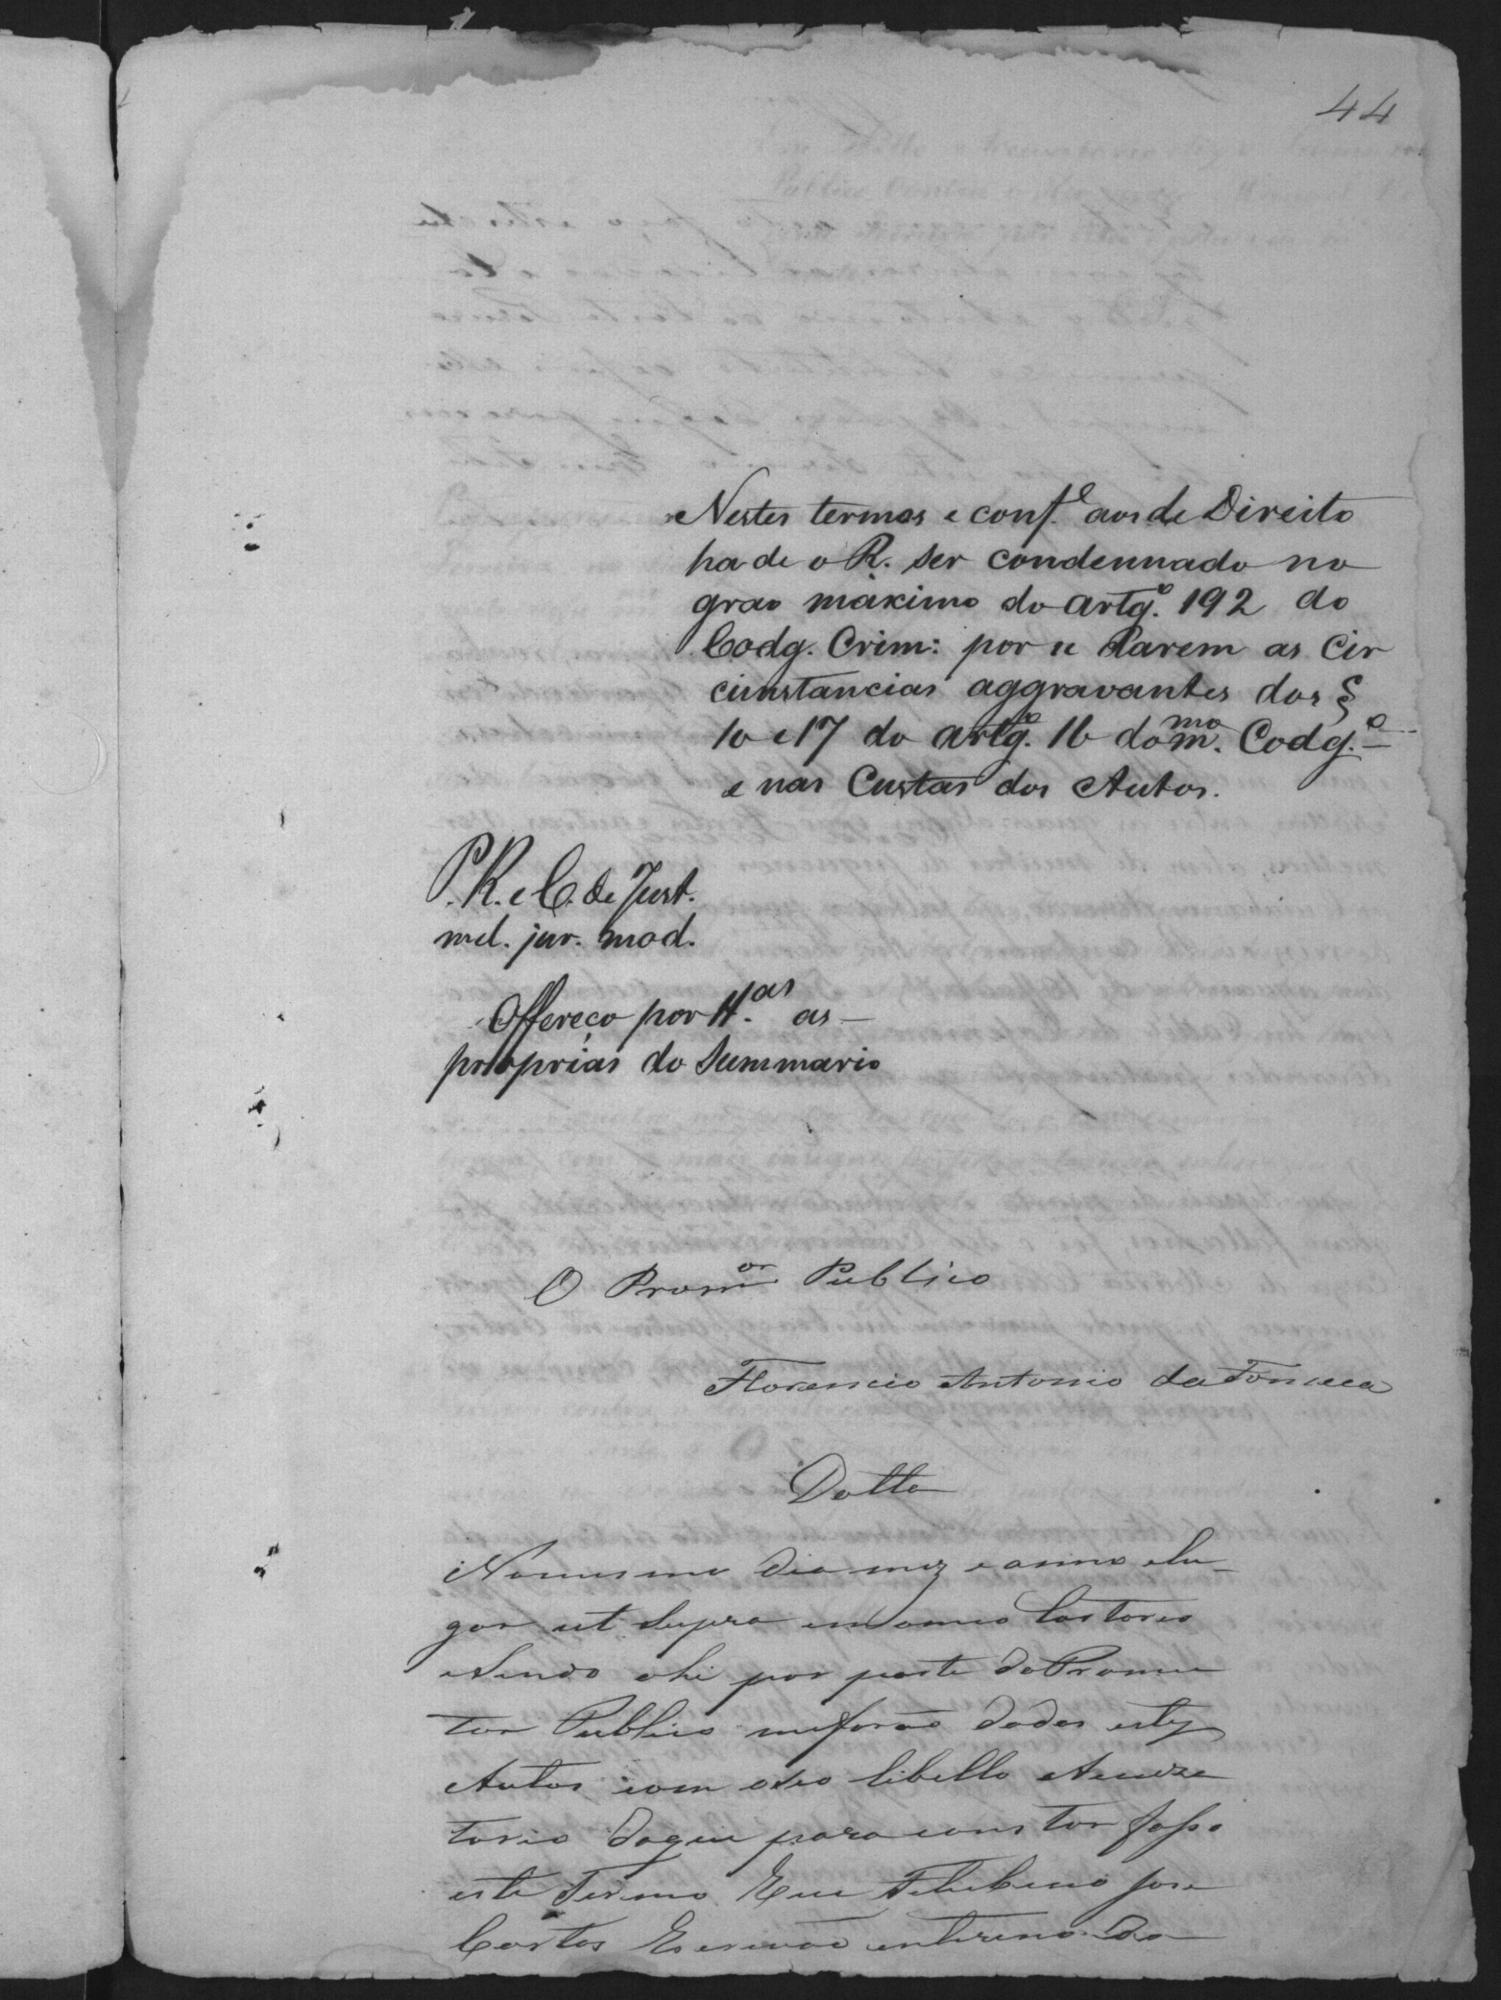 44
Nestes termos e conf.e aos de Direito
ha de o R. ser condennado no
grao maximo do artg.o 192 do
Codg. Crim: por se darem as Cir
cunstancias aggravantes dos §
10 e 17 do artg.o 16 do m.mo Codg.o
e nas Custas dos Autos.
P. R. e C. de Just.
mel. jur. mod.
Offereço por tt.as as
proprias do Summario
O Prom.or Publico
Florencio Antonio da Fonseca
Datta
No mesmo dia mez e anno e lu-
gar ut supra em o meo Cartorio
e sendo ahi por parte do Promu
tor Publico me forão dados estes
Autos com o seo libello Acuza
torio do que para constar fasso
este Termo Eu Jose
Cortes Escrivão interino do